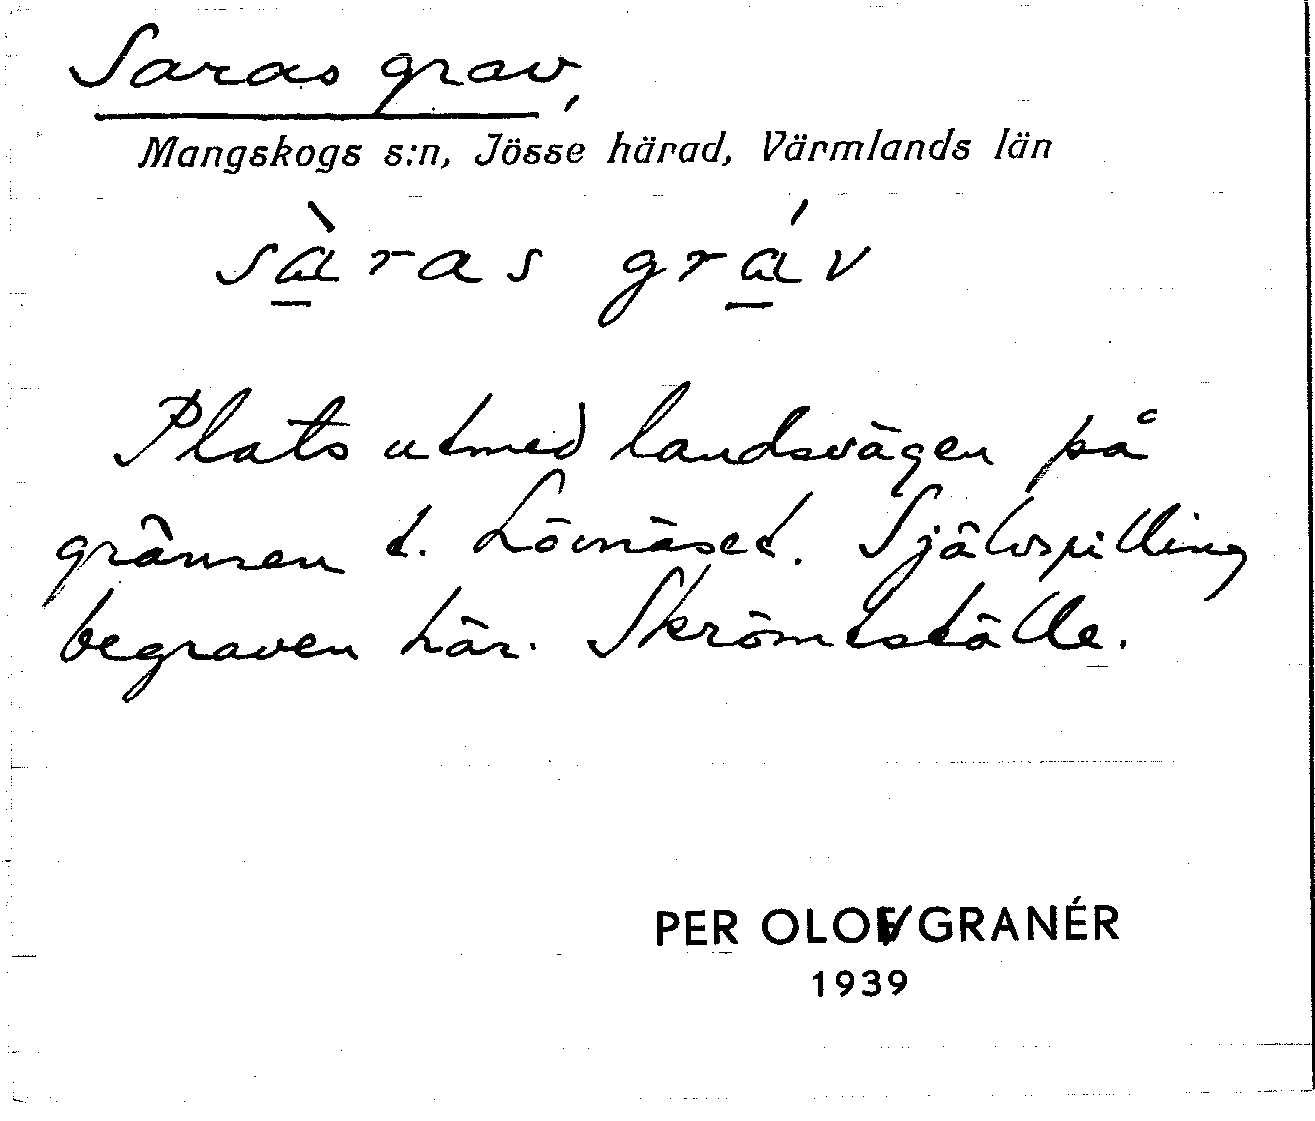 Saras grav,
Mangskogs s:n, Jösse härad, Värmlands län
sà̲ras grá̲v
Plats utmed landsvägen på
gränsen t. Lövnäset. Självspilling
begraven här. Skrömtställe.
PER OLOV GRANÉR
1939